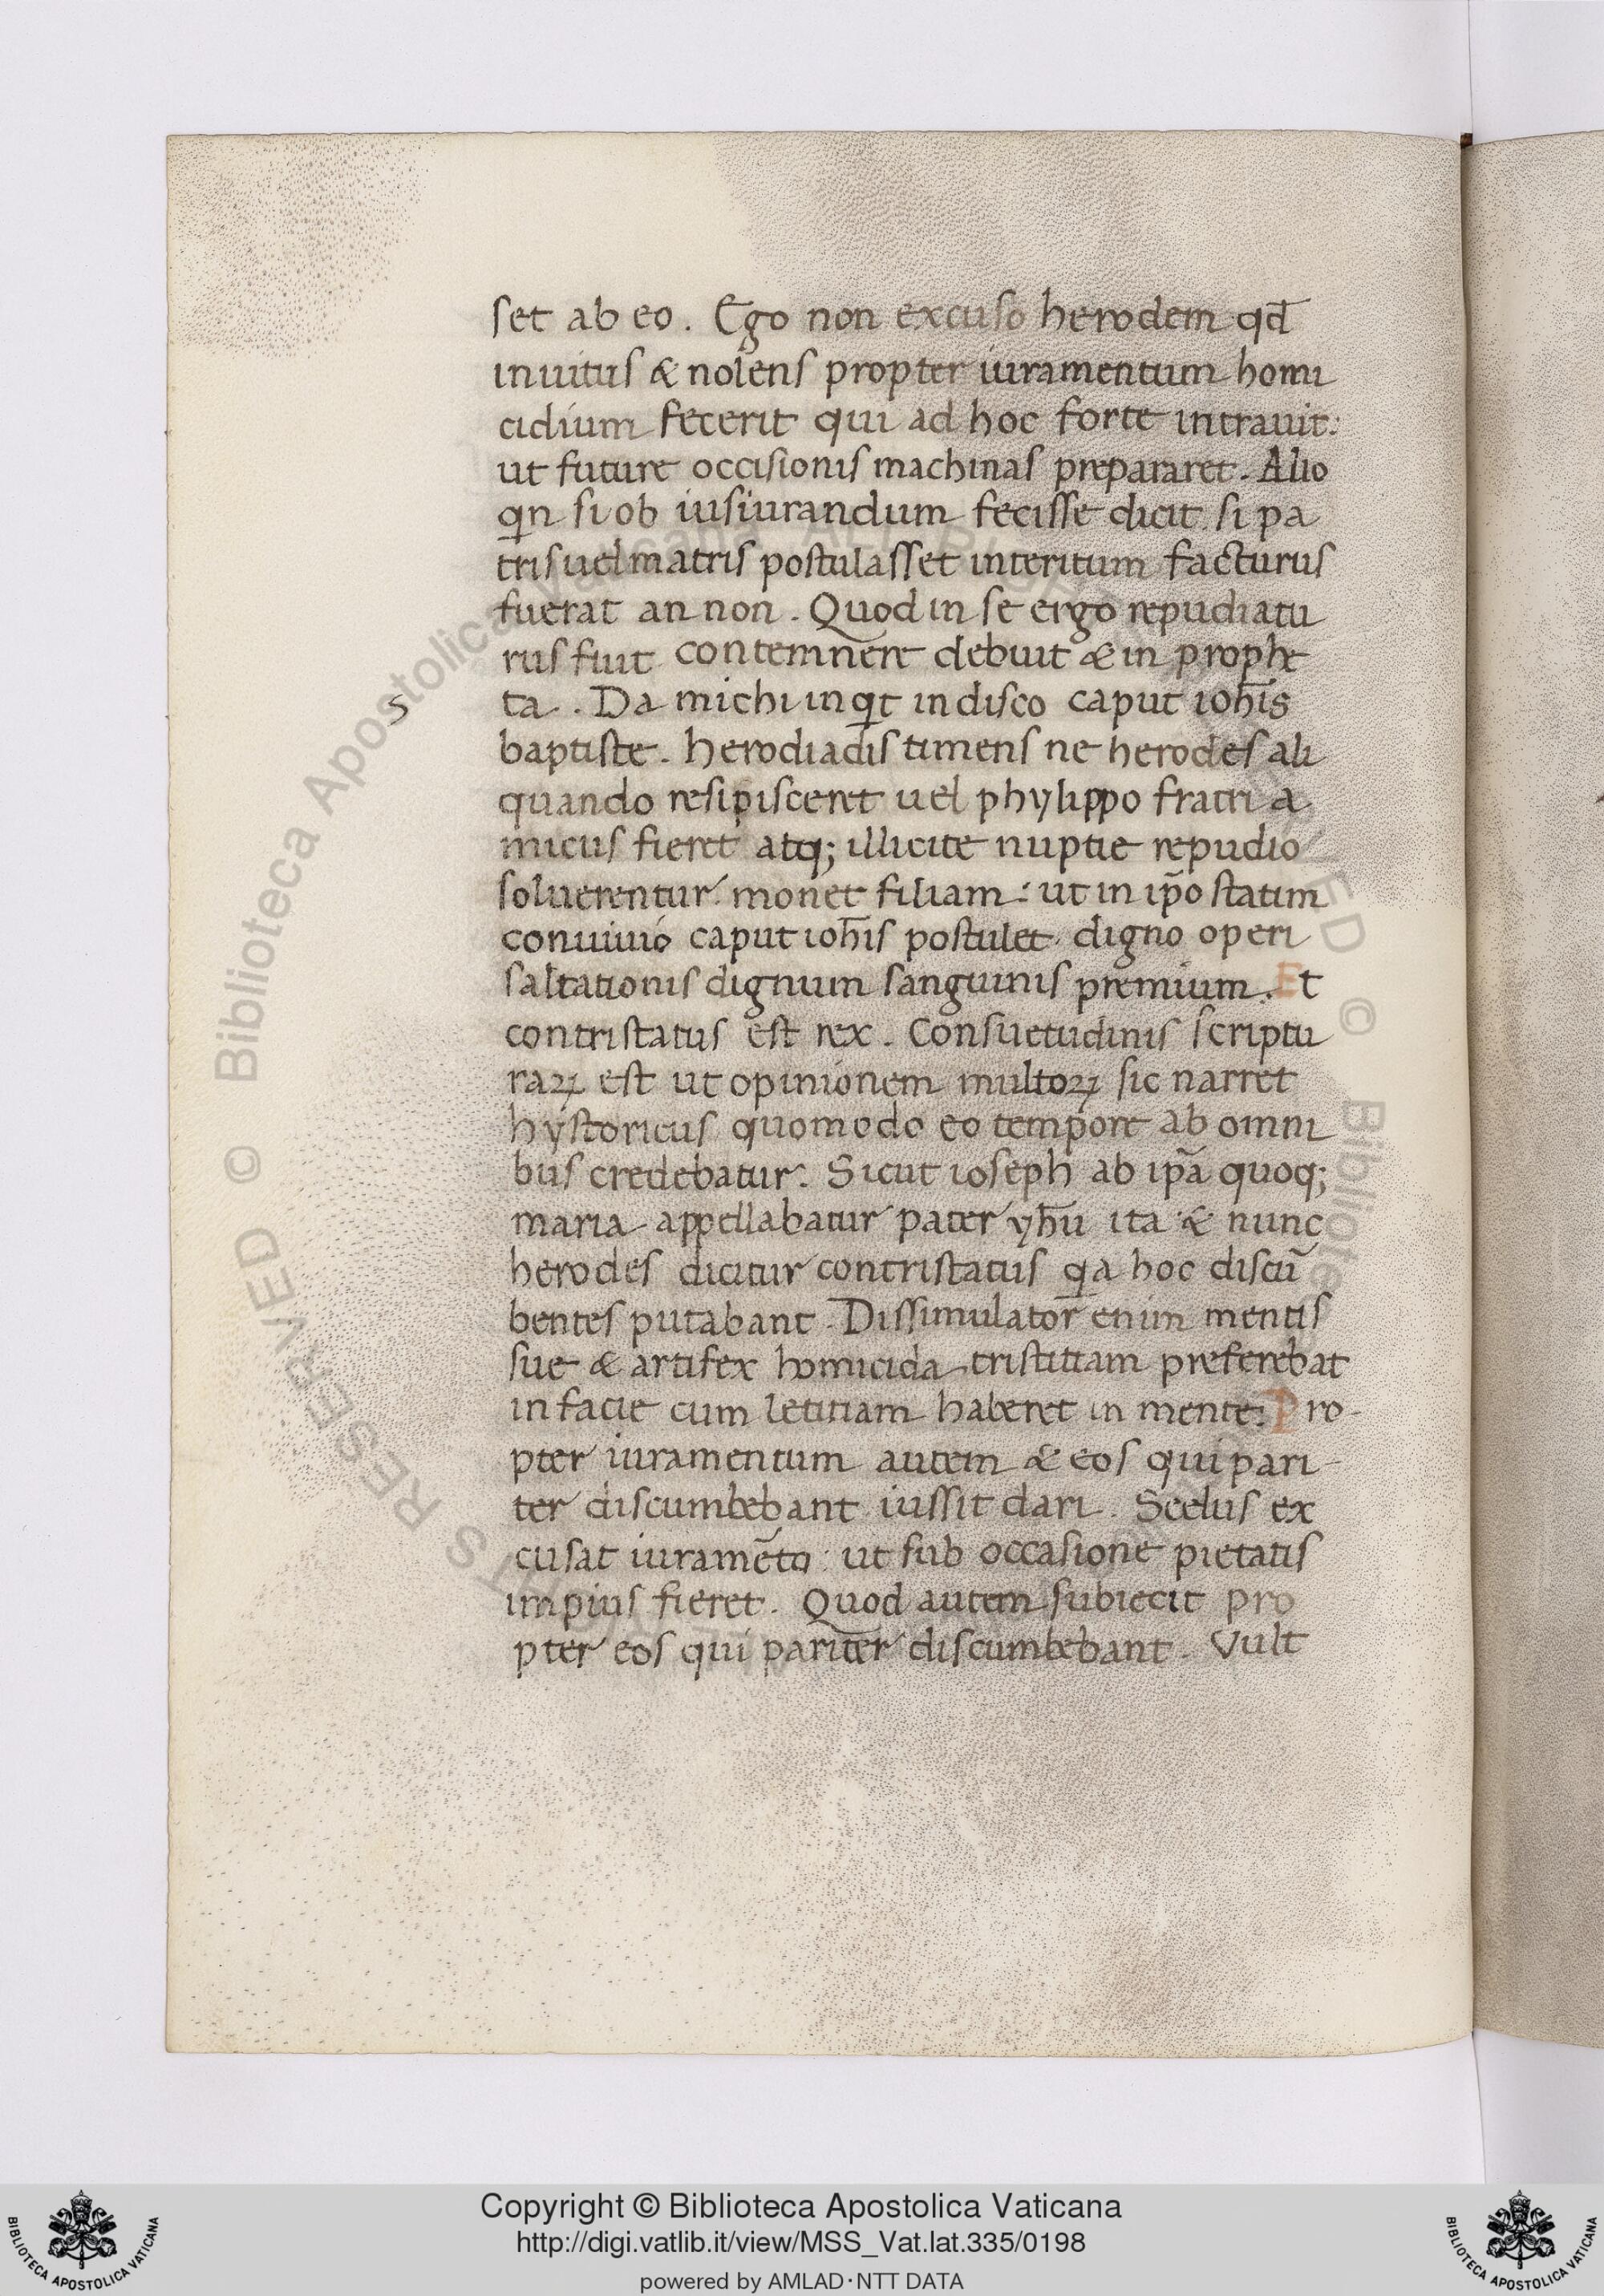 set ab eo. Ego non excuso herodem qd̄
inuitus & nolens propter iuramentum homi
cidium fecerit qui ad hoc forte intrauit:
ut future occisionis machinas prepararet. Alio
qin si ob iusiurandum fecisse dicit. si pa
tris uel matris postulasset interitum facturus
fuerat an non. Quod in se ergo repudiatu
rus fuit contemnere debuit & in prophe
ta. Da michi inqit in disco caput ioh̄is
s
baptiste. herodiadis timens ne herodes ali
quando resipisceret uel phylippo fratri a
micus fieret atq; illicite nuptie repudio
soluerentur. monet filiam: ut in ip̄o statim
conuiuio caput ioh̄is postulet. digno operi
saltationis dignum sanguinis premium. Et
contristatus est rex. Consuetudinis scriptu
raꝝ est ut opinionem multoꝝ sic narret
hystoricus quomodo eo tempore ab omni
bus credebatur. Sicut ioseph ab ip̄a quoq;
maria appellabatur pater yh̄u ita & nunc
herodes dicitur contristatus qia hoc discū
bentes putabant. Dissimulator enim mentis
sue & artifex homicida tristitiam preferebat
in facie cum letitiam haberet in mente. Pro-
pter iuramentum autem & eos qui pari-
ter discumbebant iussit dari. Scelus ex
cusat iuramēto: ut sub occasione pietatis
impius fieret. Quod autem subiecit pro
pter eos qui pariter discumbebant. Vult
Copyright © Biblioteca Apostolica Vaticana
http://digi.vatlib.it/view/MSS_Vat.lat.335/0198
powered by AMLAD·NTT DATA